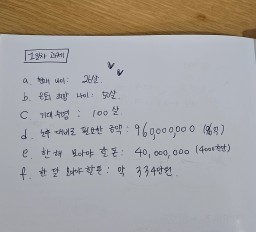 2일차 과제
a. 현재 나이: 26살
b. 은퇴 희망 나이: 50살
c. 기대 수명: 100살
d. 노후 대비로 필요한 금액: 960,000,000 (9억6천)
e. 한 해 모아야 할 돈: 40,000,000 (4000만원)
f. 한 달 모아야 할 돈: 약 334만원.